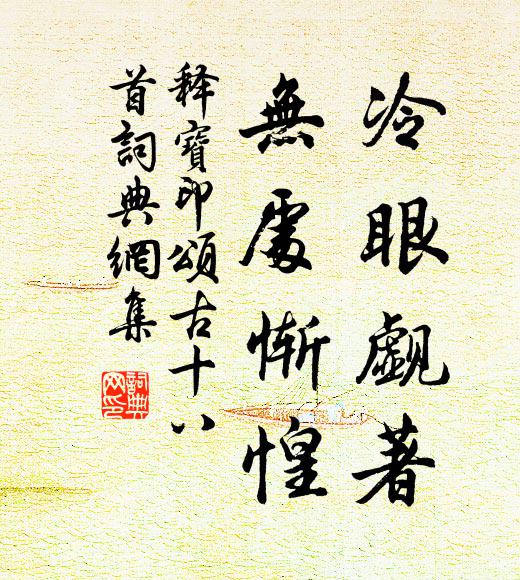 冷眼覷著
無處慚惶
释寶印頌古十八
首詞典網集
詞典
网印